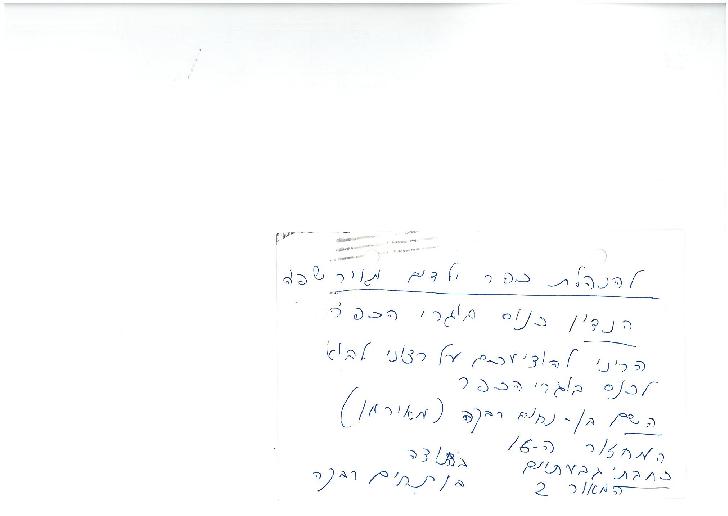 להנהלת כפר ילדים מאיר שפיה
הנדון כנוס בוגרי הכפר
הריני להודיעכם על רצוני לבוא
לכנס בוגרי הכפר
השם בן-נחום רבקה (מאירמן)
המחזור ה-16
כתובת: גבעתיים בתודה
המאור 2 בן נחום רבקה